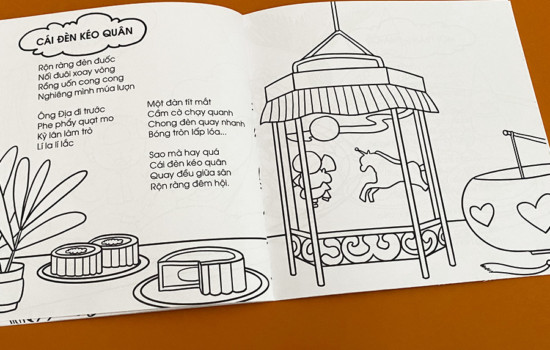 CÁI ĐÈN KÉO QUÂN
Rộn ràng đèn đuốc
Nối đuôi xoay vòng
Rồng uốn cong cong
Nghiêng mình múa lượn
Ông Địa đi trước
Phe phẩy quạt mo
Kỳ lân làm trò
Lí la lí lắc
Một đàn tít mắt
Cầm cờ chạy quanh
Chong đèn quay nhanh
Bóng tròn lấp lóa...
Sao mà hay quá
Cái đèn kéo quân
Quay đều giữa sân
Rộn ràng đêm hội.